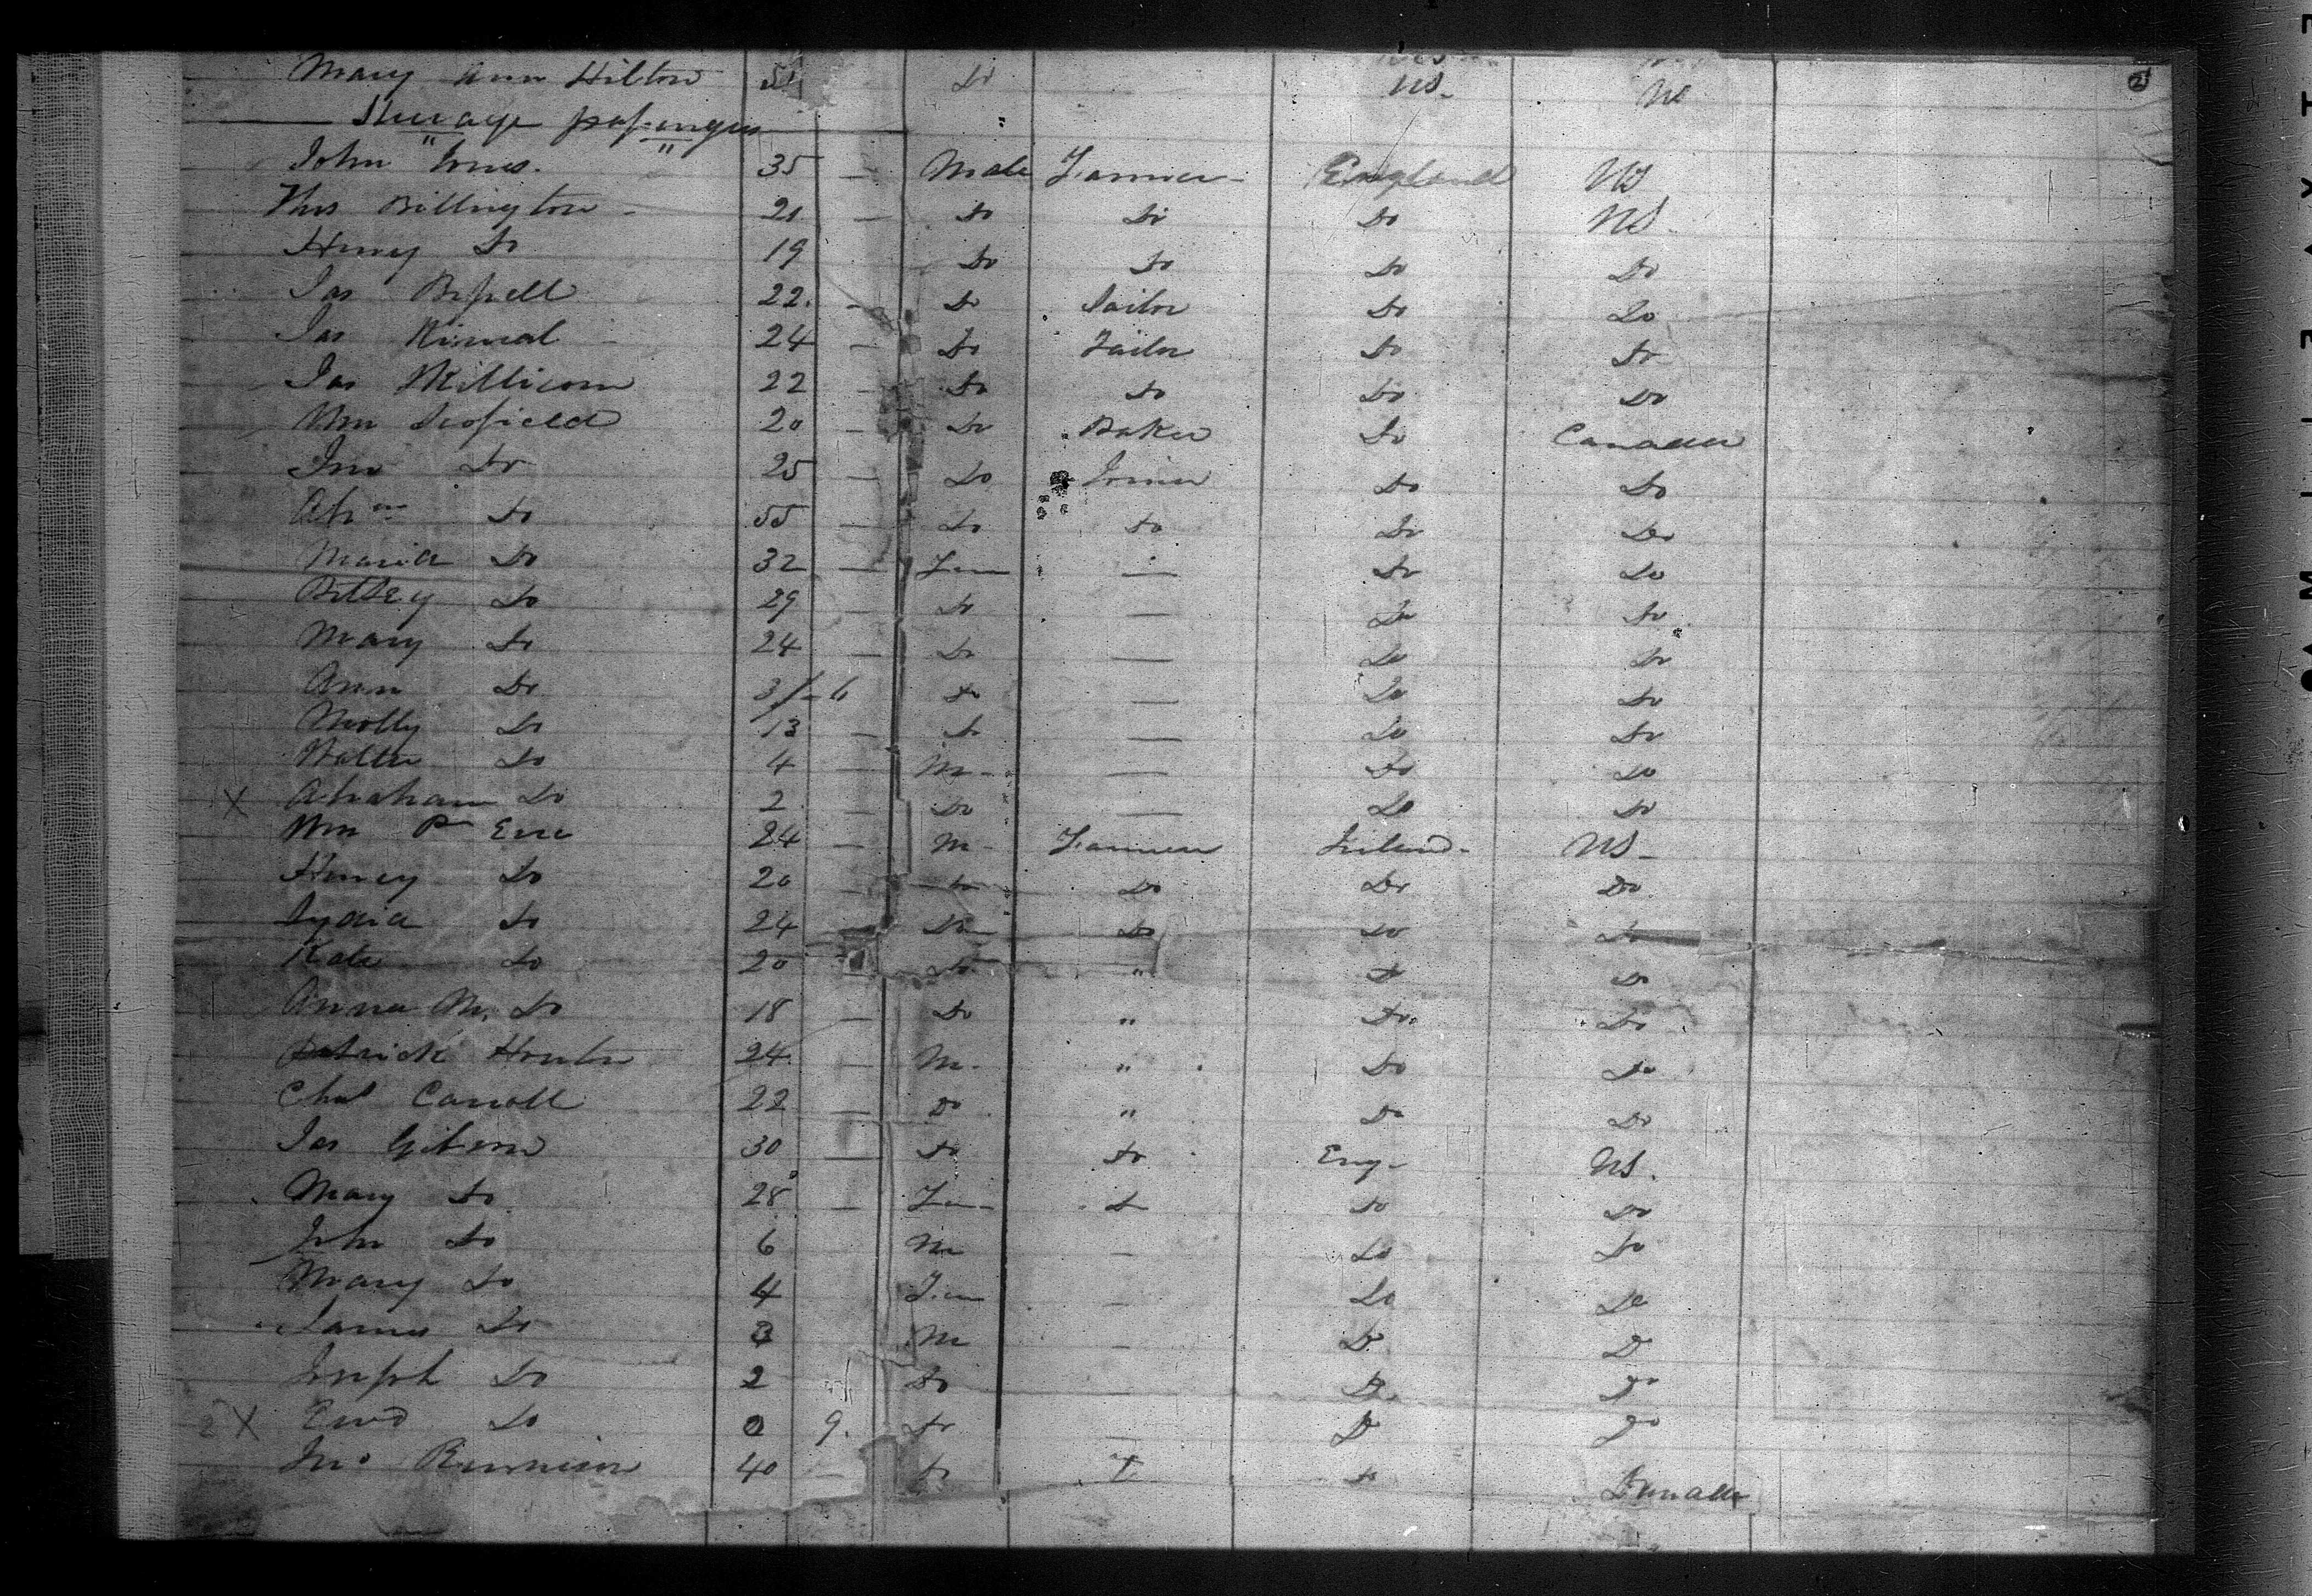 Mary Ann Hilton Do US. US
Steerage passengers
John Jones. 35 — Male Farmer England US
Thos Billington 21 — Do Do Do US
Henry Do 19 Do Do Do Do
Jas Bissell 22 — Do Sailor Do Do
Jas 24 — Do Tailor Do Do
Jas Millicom 22 — Do Do Do Do
Wm Scofield 20 — Do Baker Do Canada
Jno Do 25 — Do Joiner Do Do
Abm Do 55 — Do Do Do Do
Maria Do 32 — Fem — Do Do
Betsey Do 29 — Do — Do Do
Mary Do 24 — Do — Do Do
Ann Do Do — Do Do
Molly Do 13 — Do — Do Do
Walter Do 4 — M — Do Do
X Abraham Do 2 Do — Do Do
Wm 24 — M Farmer Ireland US
Henry Do 20 — Do Do Do Do
Lydia Do 24 — Do Do Do
Kate Do 20 — Do " Do Do
Anna M. Do 18 — Do " Do Do
Patrick 24 — M. " Do Do
Chas Carroll 22 — Do " Do Do
Jas Gibson 30 — Do Do Eng US.
Mary Do 28 — Fem Do Do Do
John Do 6 M — Do Do
Mary Do 4 Fem — Do Do
James Do M — Do Do
Joseph Do 2 Do — Do Do
2 X Do 0 9. Do — Do Do
Jno 40 — Do Do Canada